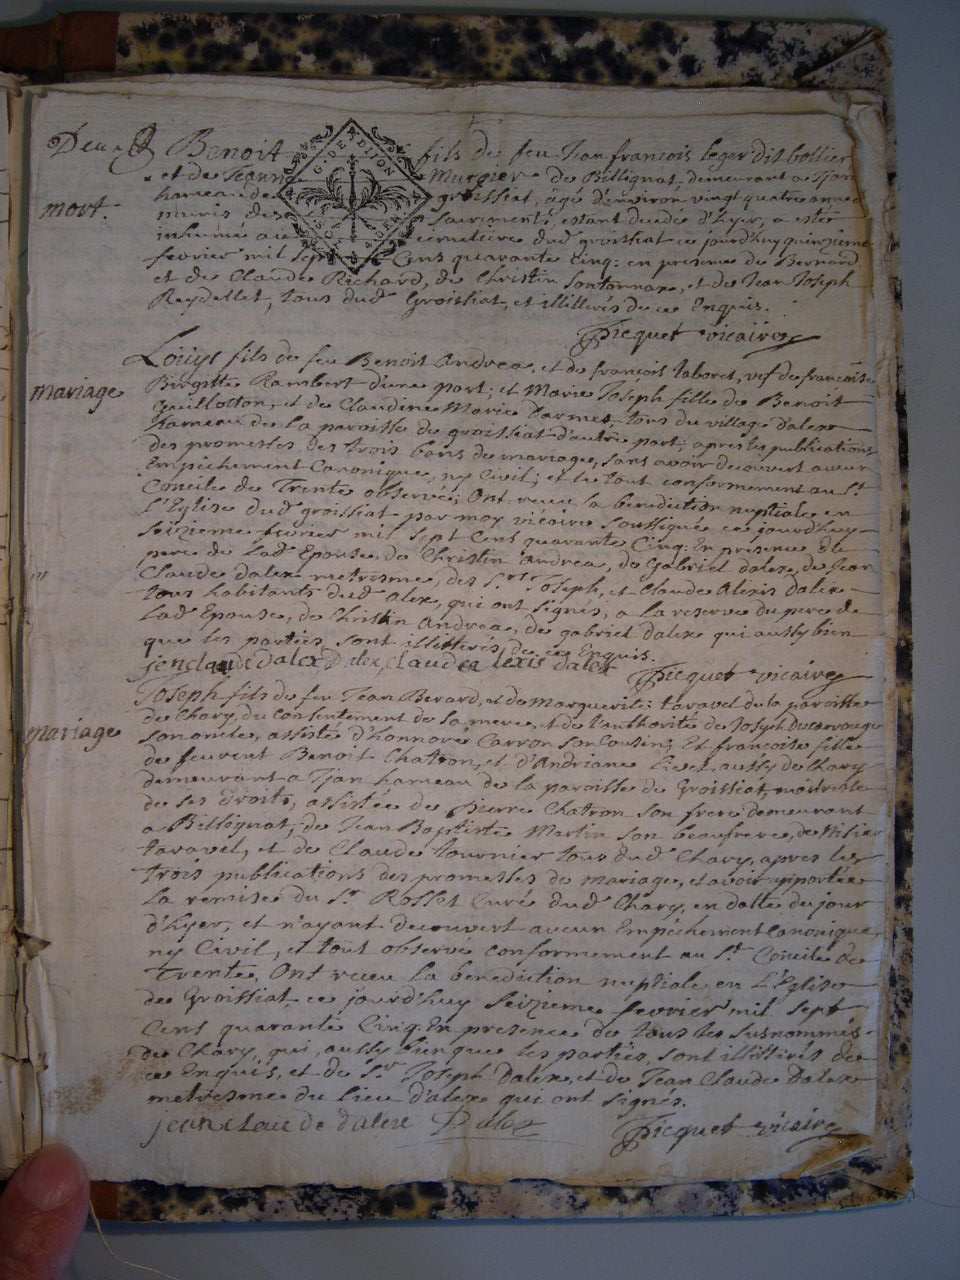 Deux D
mort.
G. DE DIJON
Benoit fils de feu Jean francois leger dit bollier
et de Jeanne Murgier de Billignat, demeurant a Tjan
hameau de groissiat, agé d'environ vingt quatre années
munis des sacrements, estant decedé d'hyer, a esté
inhumé au cemetiere dud. groissiat ce jourd'huy quinzieme
fevrier mil sept Cens quarante Cinq: en presence de Bernard
et de Claude Richard, de Christin Sontonnax, et de Jean Joseph
Reydellet, tous dud. Groissiat, et illiterés de ce Enquis.
Picquet vicaire
mariage
Louys fils de feu Benoit Andrea, et de francois laboret, vef de francoise
Birgitte Rambert d'une part; et Marie Joseph fille de Benoit
Guillotton, et de Claudine Marie Darmes, tous du village dalex
hameau de la paroisse de groissiat d'autre part; apres les publications
des promesses des trois bans de mariage, sans avoir decouvert aucun
Empéchement Canonique, ny Civil; et le tout conformement au St.
Concile de Trente observé; Ont receu la benediction nuptiale en
l'Eglise dud. groissiat par moy vicaire soussigné ce jourd'huy
seizieme fevrier mil sept Cens quarante Cinq. En presence de
pere de lad. Epouse, de Christin Andrea, de Gabriel Dalex, de Jean
Claude dalex metresme, des Srs. Joseph, et Claude Alexis Dalex
tous habitants dud. alex, qui ont signés, a la reserve du pere de
lad. Epouse, de Christin Andrea, de gabriel dalex qui aussy bien
que les parties sont illiterés de ce Enquis.
jenclaude dalex Dalex, claude alexis dalex
Picquet vicaire
mariage
Joseph fils de feu Jean Berard, et de Marguerite taravel de la paroisse
de Chary, du Consentement de sa mere, et de l'authorité de Joseph
son oncle, assisté d'honnoré Carron son Cousin; Et francoise fille
de feu Benoit Chatron, et d'Andriane aussy de Chary
demeurant a Tjan hameau de la paroisse de Groissiat, maitresse
de ses droits, assistée de Pierre Chatron son frere demeurant
a Billegnat, de Jean Baptiste Martin son beaufrere,
taravel, et de Claude tournier tous dud. Chary, apres les
trois publications des promesses de mariage, et avoir apportée
la remise du Sr. Rosset Curé dud. Chary, en datte du jour
d'hyer, et n'ayant decouvert aucun Empéchement Canonique
ny Civil, et tout observé conformement au St. Concile de
Trente, Ont receu la benediction nuptiale en L'Eglise
de Groissiat ce jourd'huy seizieme fevrier mil sept
Cens quarante Cinq. En presence de tous les susnommés
de Chary, qui, aussy bien que les parties sont illiterés de
ce Enquis, et de Sr. Joseph Dalex, et de Jean Claude Dalex
metresme du lieu d'alex qui ont signés.
jean claude dalex Dalex
Picquet vicaire